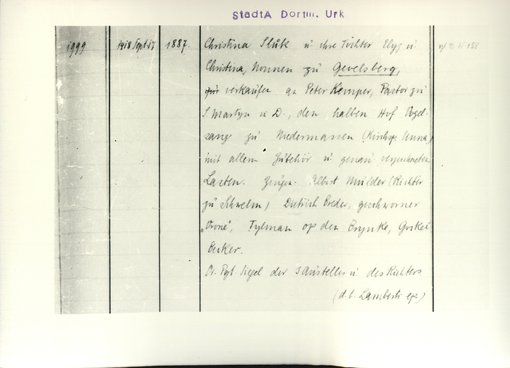 StadtA Dortm. Urk
1999 1418 Sept 17 1887. Christina Stübe u ihre Töchter Elyz u
Christina, Nonnen zu Gevelsberg,
verkaufen an Peter Kemper, Pastor zu
S. Martyn i. D., den halben Hof Vogel-
sang zu Niedermassen (Kirchsp. Unna)
mit allem Zubehör u genau
Lasten. Zeugen: Albert Mulder (Richter
zu Schwelm) Dietrich Vreder, geschworner
"Vrone", Tylman op den Brynke, Goskel
Becker.
Or. Pgt. Siegel der 3 Aussteller u des Richters
(d. b. Lamberti epi)